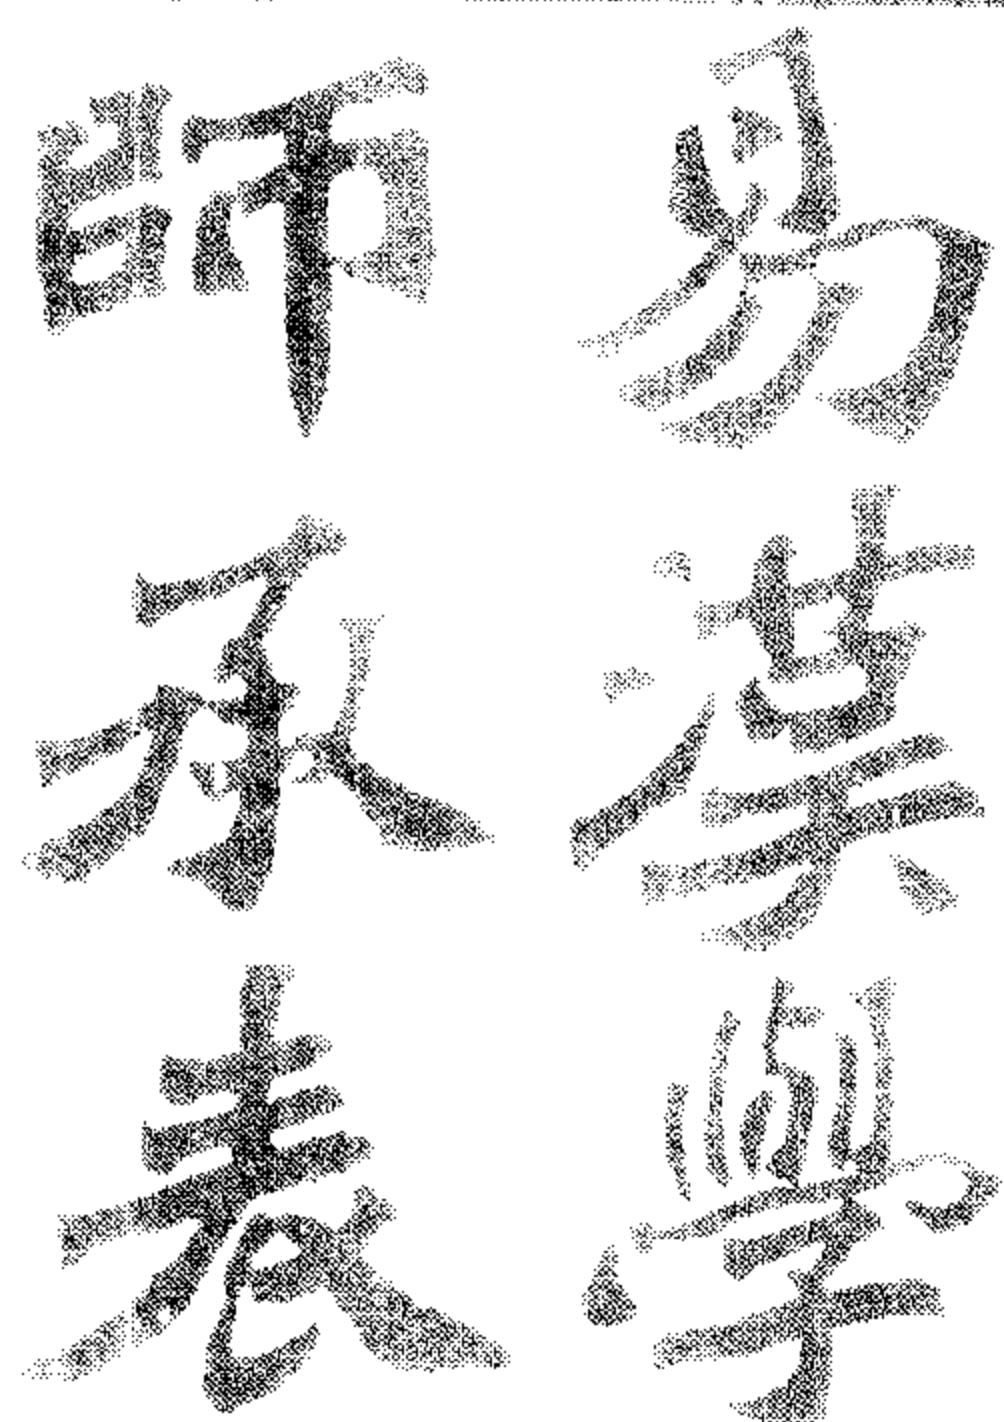 易漢學
師承表